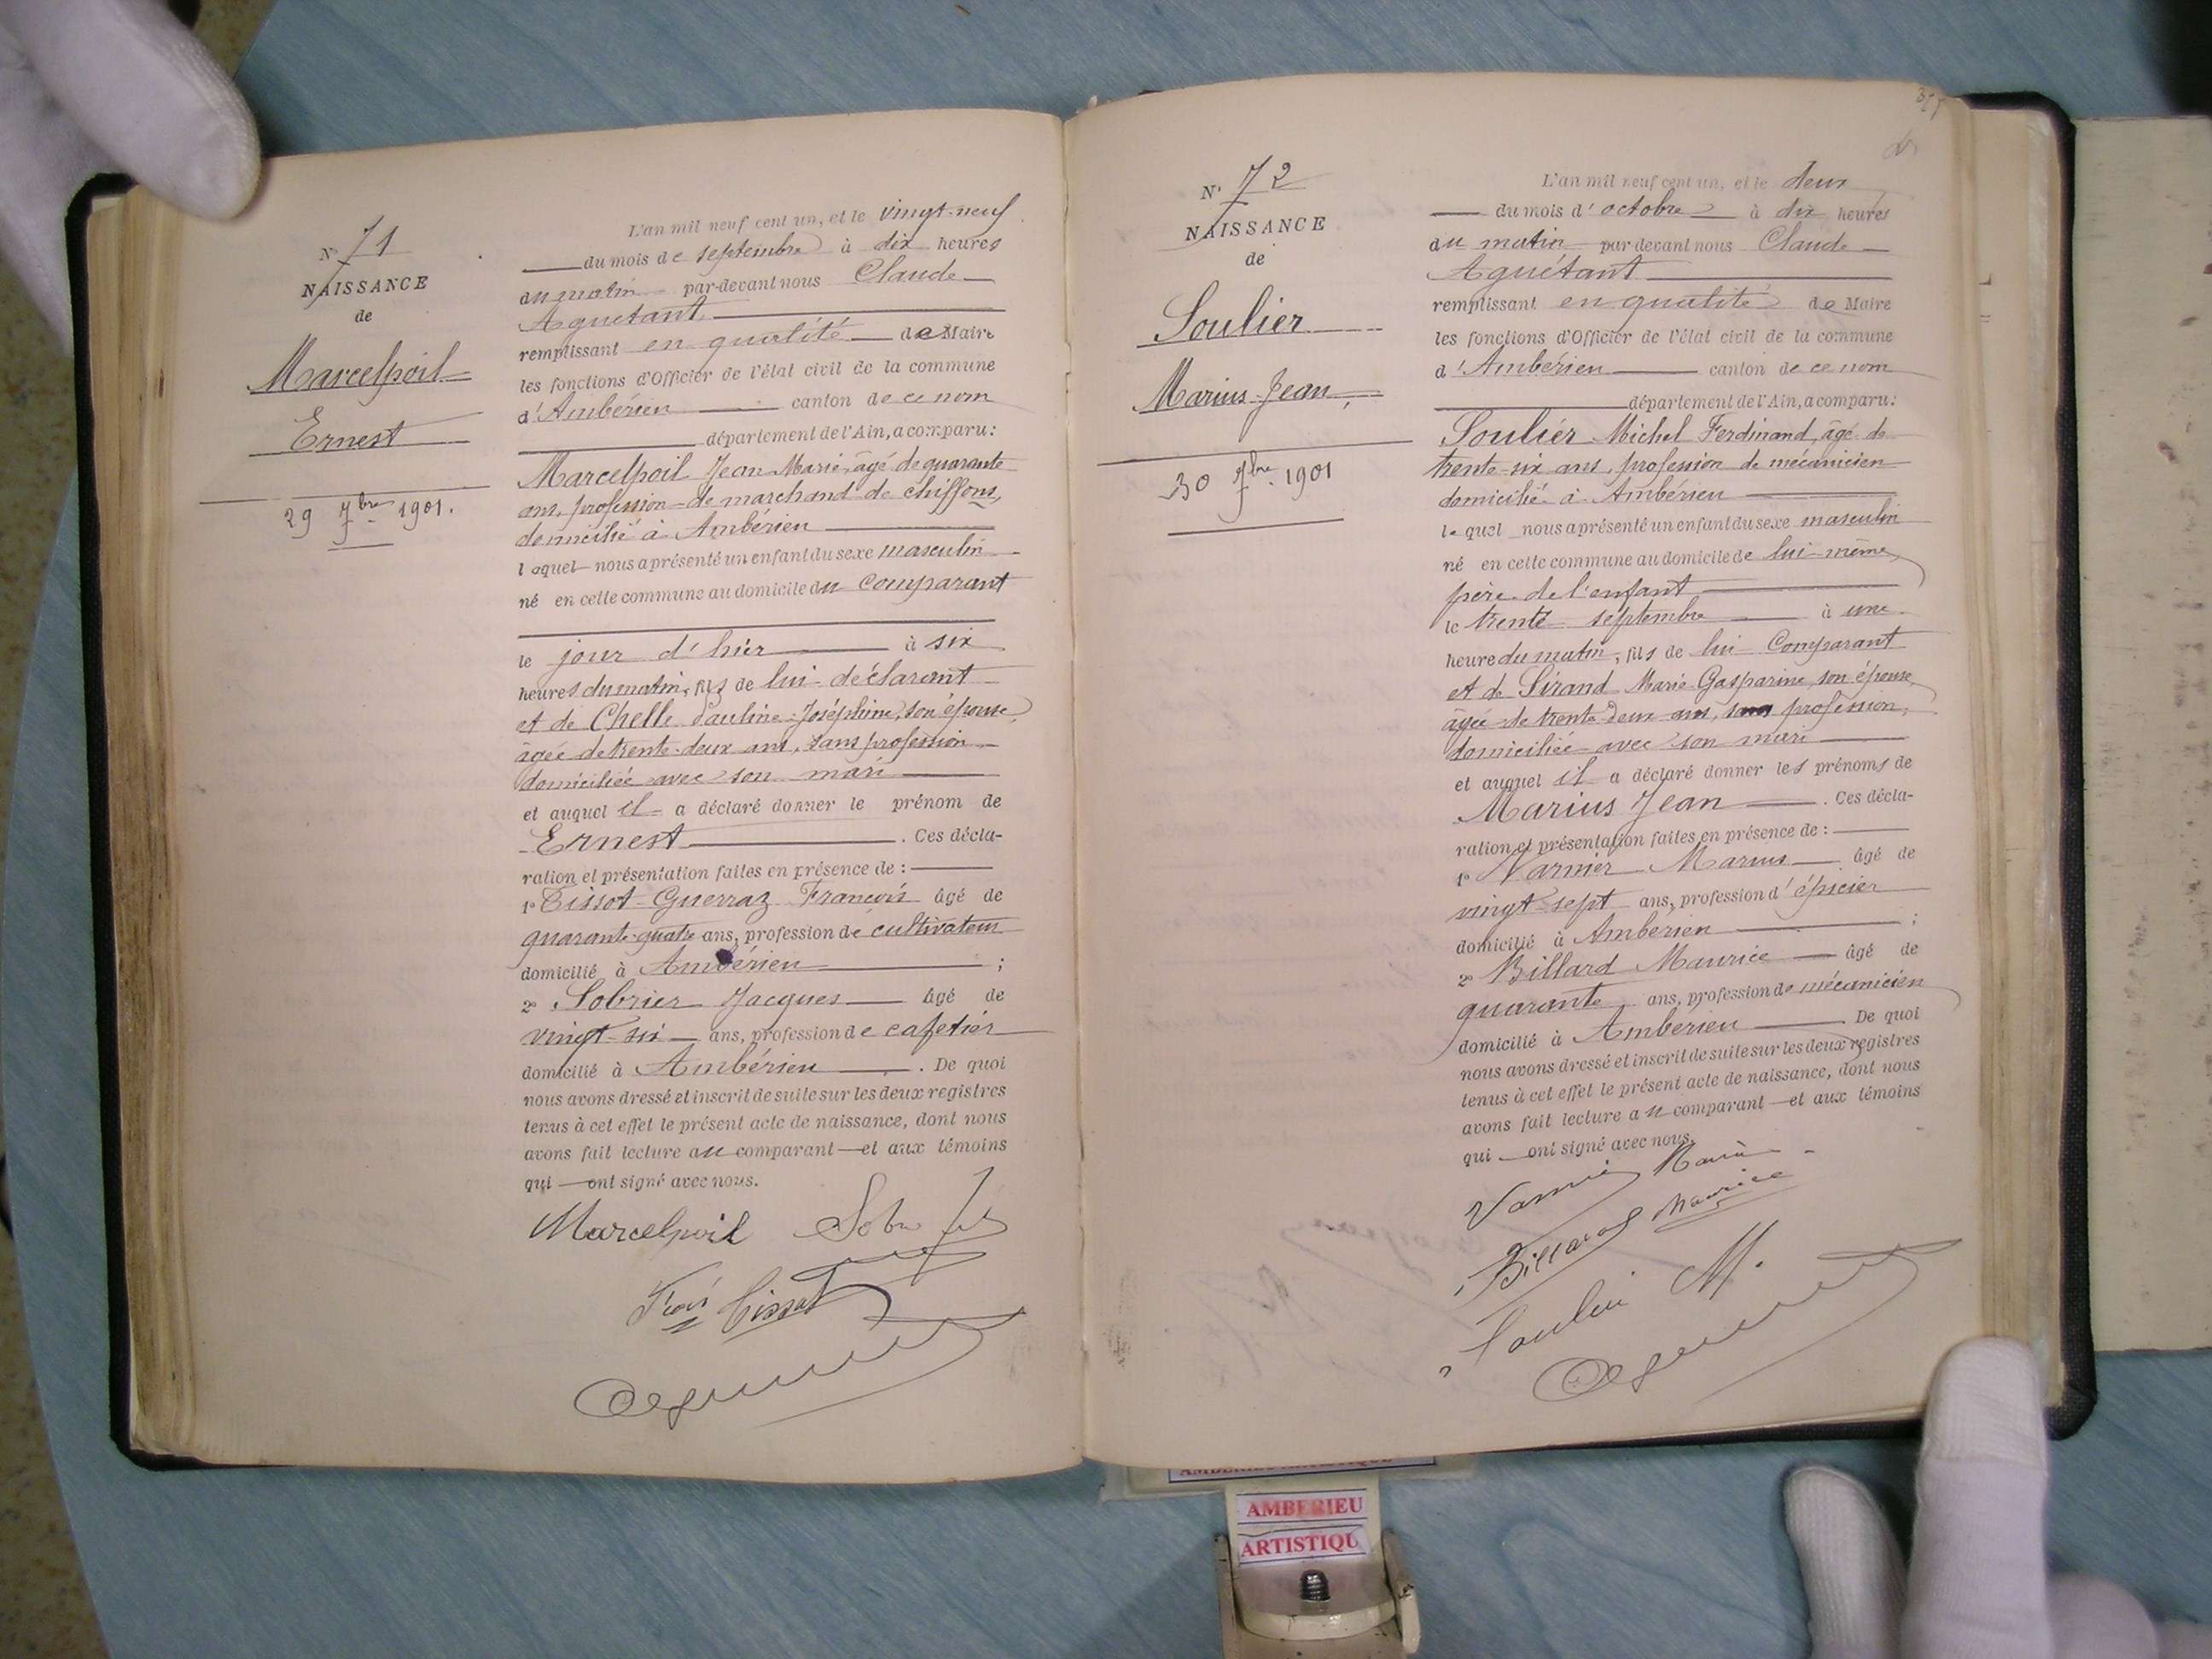 N° 71
NAISSANCE
de
Marcelpoil
Ernest
29 7bre 1901.
L'an mil neuf cent un, et le vingt-neuf
du mois de septembre à dix heures
du matin par-devant nous Claude
Aguétant
remplissant en qualité de Maire
les fonctions d'Officier de l'état civil de la commune
d'Ambérieu canton de ce nom
département de l'Ain, a comparu :
Marcelpoil Jean-Marie, âgé de quarante
ans, profession de marchand de chiffons,
domicilié à Ambérieu
lequel nous a présenté un enfant du sexe masculin
né en cette commune au domicile du Comparant
le jour d'hier à six
heures du matin, fils de lui déclarant
et de Chelle Pauline-Joséphine, son épouse,
âgée de trente-deux ans, sans profession
domiciliée avec son mari
et auquel il a déclaré donner le prénom de
Ernest. Ces décla-
ration et présentation faites en présence de :
1° Tissot-Guerraz François âgé de
quarante-quatre ans, profession de cultivateur
domicilié à Ambérieu ;
2° Sobrier Jacques âgé de
vingt-six ans, profession de cafetier
domicilié à Ambérieu. De quoi
nous avons dressé et inscrit de suite sur les deux registres
tenus à cet effet le présent acte de naissance, dont nous
avons fait lecture au comparant et aux témoins
qui ont signé avec nous.
Marcelpoil
Tissot
N° 72
NAISSANCE
de
Soulier
Marius-Jean,
30 7bre. 1901
L'an mil neuf cent un, et le deux
du mois d'octobre à dix heures
du matin par devant nous Claude
Aguétant
remplissant en qualité de Maire
les fonctions d'Officier de l'état civil de la commune
d'Ambérieu canton de ce nom
département de l'Ain, a comparu :
Soulier Michel Ferdinand, âgé de
trente-six ans, profession de mécanicien
domicilié à Ambérieu
lequel nous a présenté un enfant du sexe masculin
né en cette commune au domicile de lui-même,
père de l'enfant
le trente septembre à une
heure du matin, fils de lui Comparant
et de Sirand Marie-Gasparine, son épouse,
âgée de trente-deux ans, sans profession,
domiciliée avec son mari
et auquel il a déclaré donner les prénoms de
Marius Jean. Ces décla-
ration et présentation faites en présence de :
1° Varnier Marius âgé de
vingt-sept ans, profession d'épicier
domicilié à Ambérieu ;
2° Billard Maurice âgé de
quarante ans, profession de mécanicien
domicilié à Ambérieu De quoi
nous avons dressé et inscrit de suite sur les deux registres
tenus à cet effet le présent acte de naissance, dont nous
avons fait lecture au comparant et aux témoins
qui ont signé avec nous.
Billard Maurice
Soulier M.
AMBERIEU
ARTISTIQU